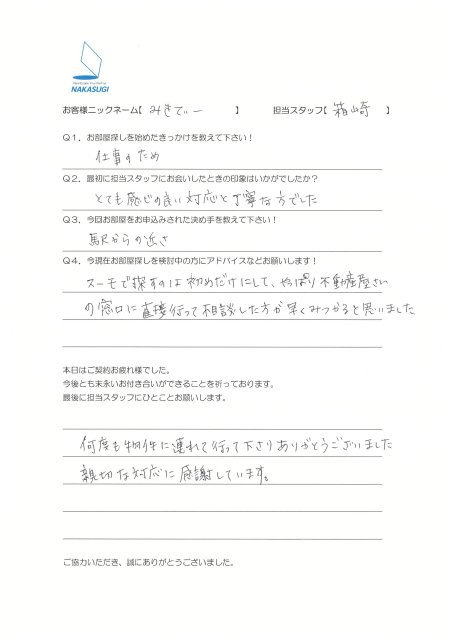 NAKASUGI
お客様ニックネーム【 みきてぃー 】 担当スタッフ【 箱崎 】
Q1．お部屋探しを始めたきっかけを教えて下さい！
仕事のため
Q2．最初に担当スタッフにお会いしたときの印象はいかがでしたか？
とても感じの良い対応と丁寧な方でした
Q3．今回お部屋をお申込みされた決め手を教えて下さい！
駅からの近さ
Q4．今現在お部屋探しを検討中の方にアドバイスなどお願いします！
スーモで探すのは初めだけにして、やっぱり不動産屋さん
の窓口に直接行って相談した方が早くみつかると思いました
本日はご契約お疲れ様でした。
今後とも末永いお付き合いができることを祈っております。
最後に担当スタッフにひとことお願いします。
何度も物件に連れて行って下さりありがとうございました
親切な対応に感謝しています。
ご協力いただき、誠にありがとうございました。